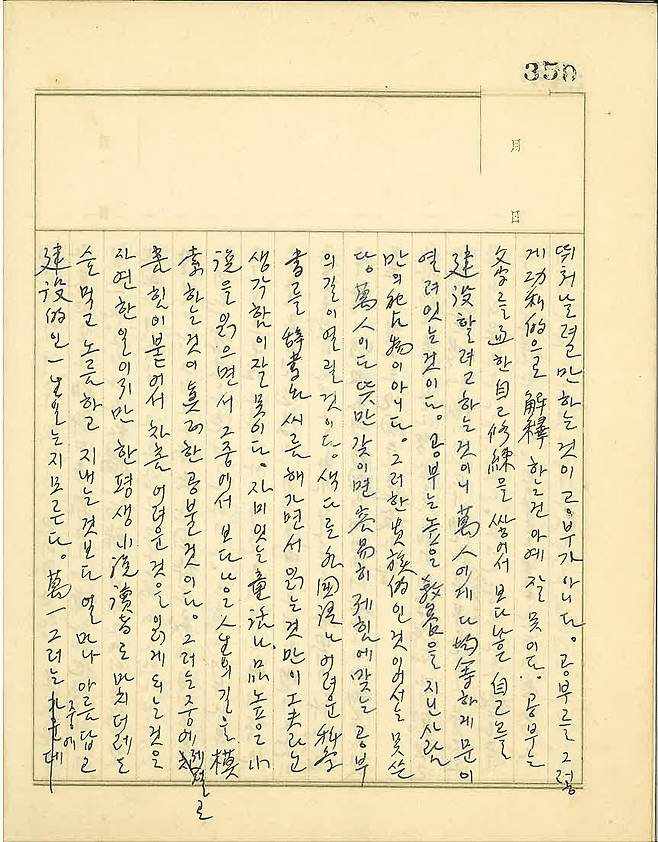 350
月
日
뛰처 날렬만 하는 것이 공부가 아니다. 공부를 그렇
게 功利的으로 解釋하는건 아예 잘못이다. 공부는
文字를 通한 自己修練을 쌓어서 보다 나은 自己를
建設할려고 하는것이니 萬人에게 다 均等하게 문이
열려 있는것이다. 공부는 높은 敎養을 지닌 사람
만의 独占物이 아니다. 그러한 贵族的인 것이어서는 못쓴
다. 萬人이 다 뜻만 같이면 容易히 제힘에 맞는 공부
의 길이 열릴 것이다. 색다른 外国語나 어려운 科学
書를 辞書와 씨름해가면서 읽는것만이 工夫라는
생각함이 잘못이다. 자미있는 童話나, 品높은 小
說을 읽으면서 그중에서 보다 나은 人生의 길을 模
索하는것이 眞正한 공불 것이다. 그러는 중에 제절로
차츰 힘이 붙어서 차츰 어려운 것을 읽게 되는것은
自然한 일이지만 한평생 小说讀者로 마치더래도
술먹고 노름하고 지내는 것보다 얼마나 아름답고
建設的인 一生일는지 모른다. 萬一 그러는 가운데
중에